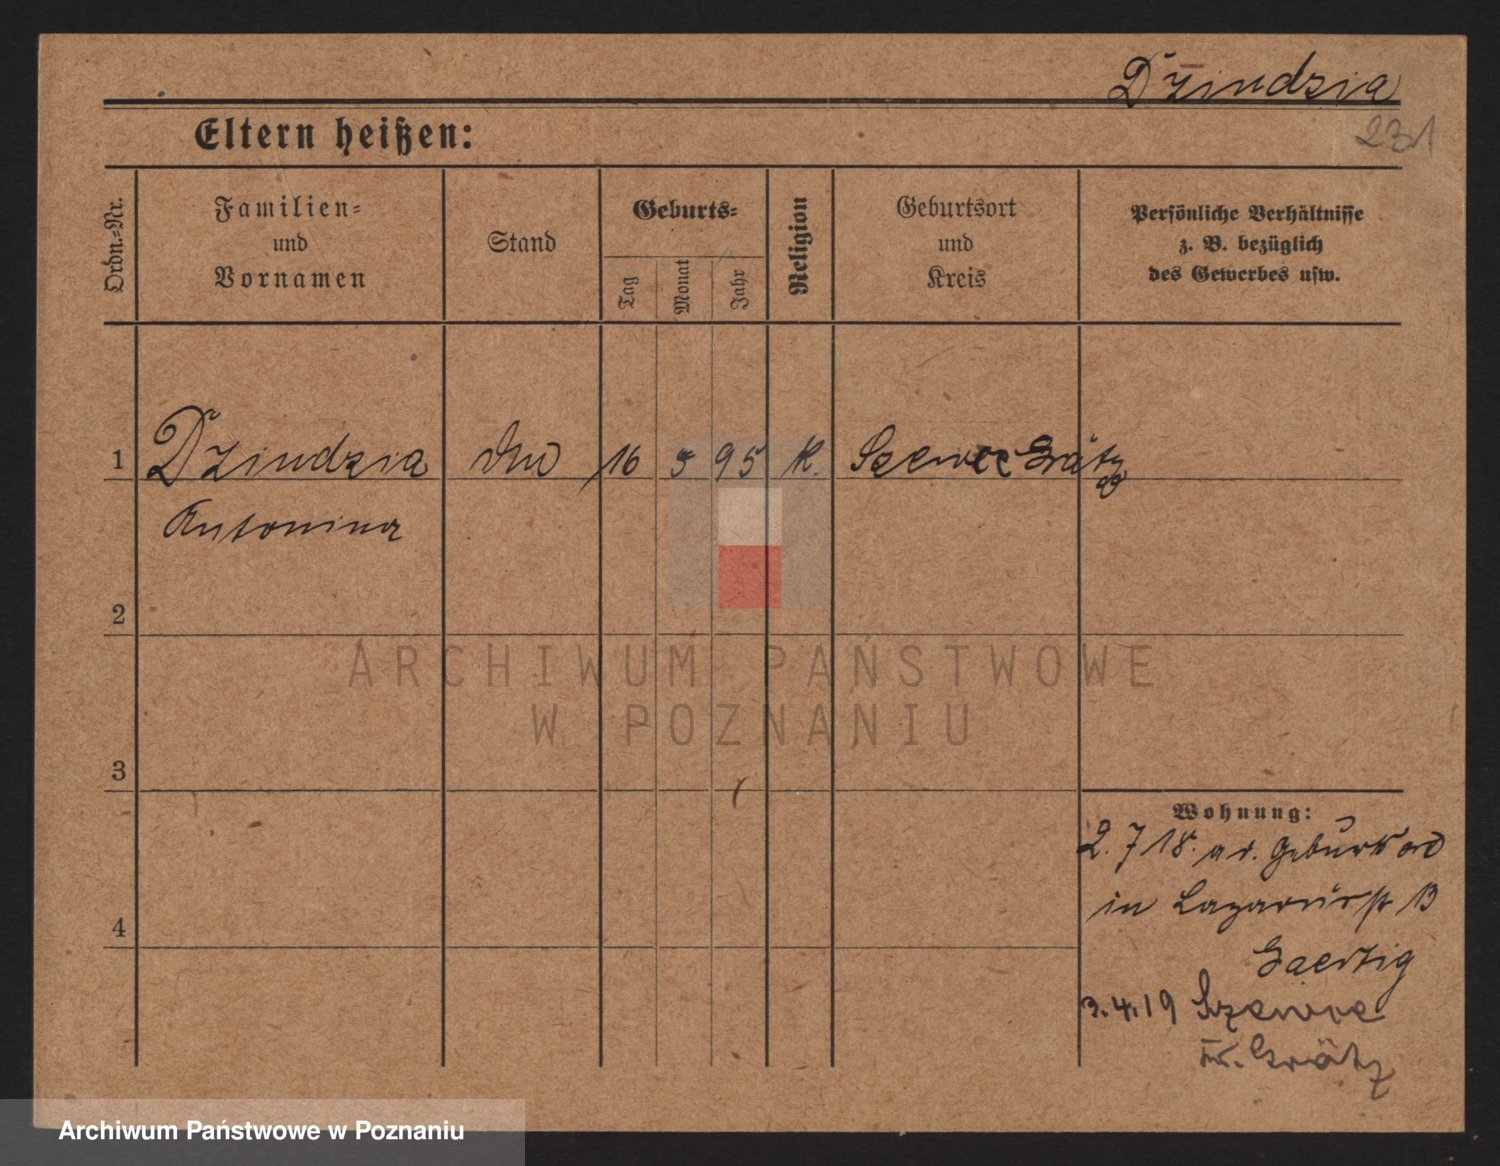 Dzindzia
231
Eltern heißen:
Ordn.-Nr.
Familien-
und
Vornamen
Stand
Geburts-
Tag
Monat
Jahr
Religion
Geburtsort
und
Kreis
Persönliche Verhältnisse
z. B. bezüglich
des Gewerbes usw.
1 Dzindzia 16 5 95 K. Szewce Grätz
Antonina
2
ARCHIWUM PAŃSTWOWE
W POZNANIU
3
Wohnung:
2. 7 18. a d. Geburtsort
in Lazarusstr 13
4
Gaertig
3.4.19 Szewce
Kr. Grätz
Archiwum Państwowe w Poznaniu